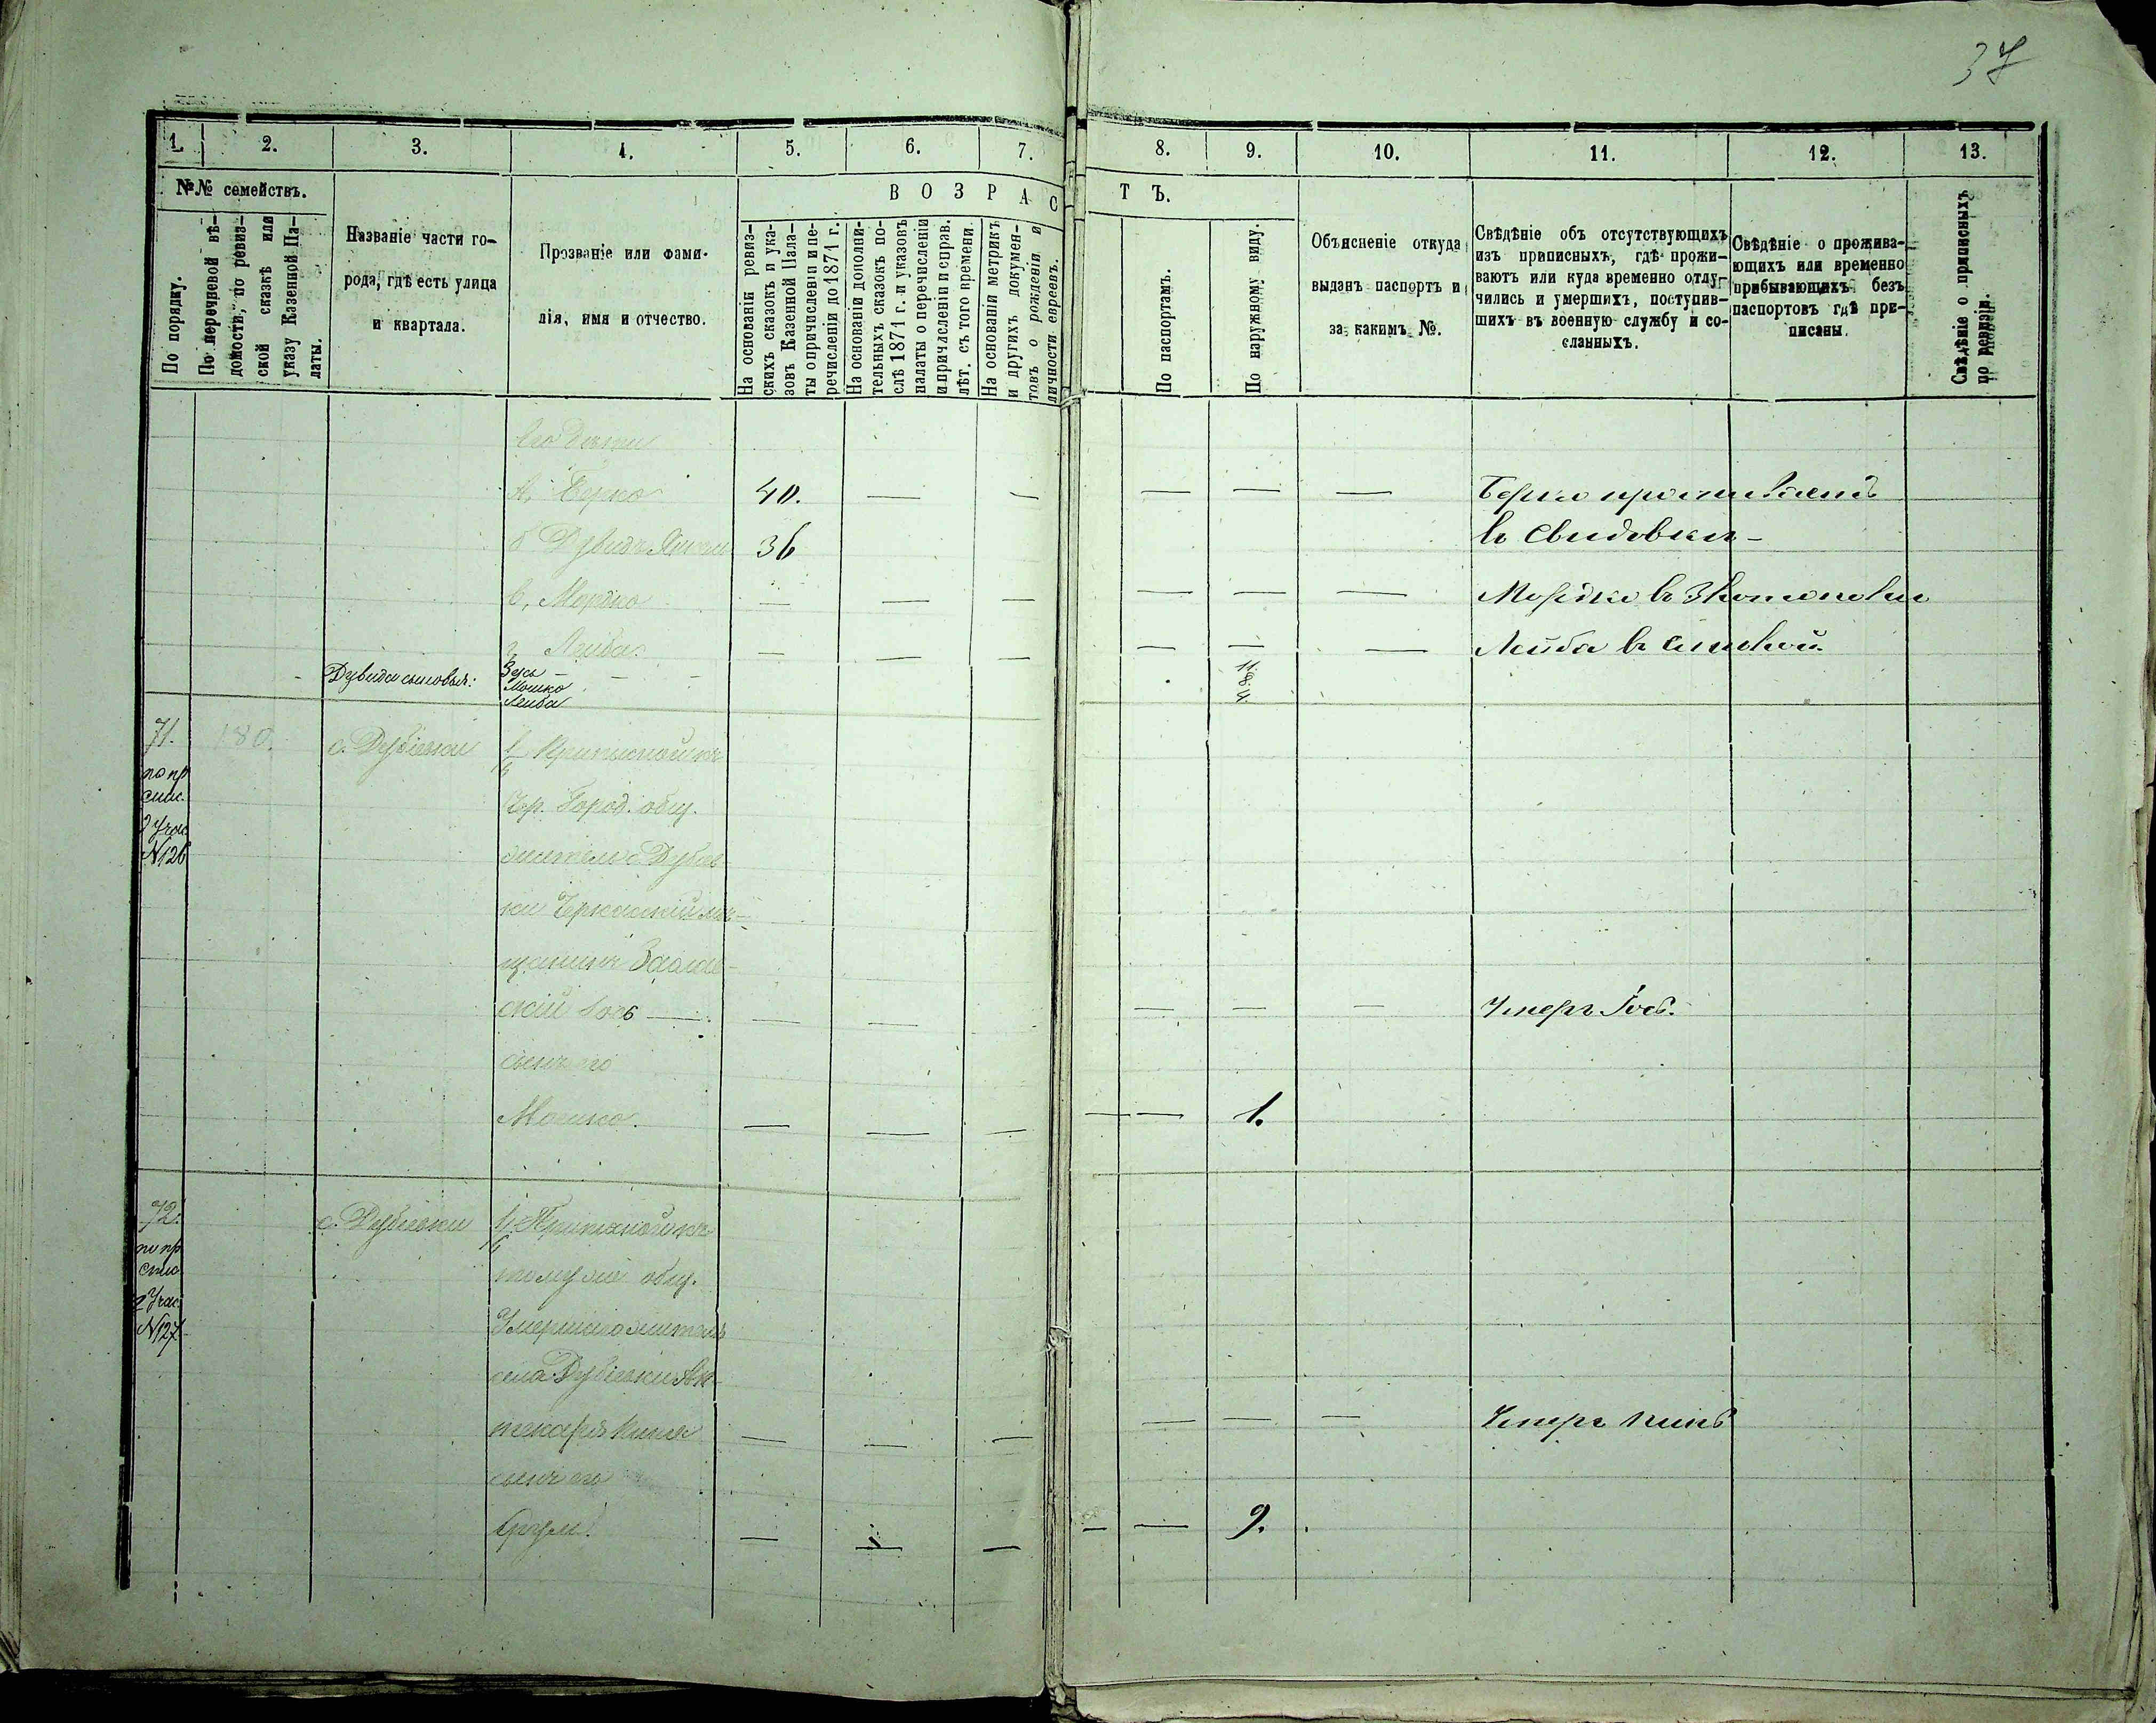 37
1. 2. 3. 4. 5. 6. 7. 8. 9. 10. 11. 12. 13.
№№ семействъ.
По порядку.
По перечневой вѣ-
домости, по ревиз-
ской сказкѣ или
указу Казенной Па-
латы.
Названіе части го-
рода, гдѣ есть улица
и квартала.
Прозваніе или фами-
лія, имя и отчество.
ВОЗРАСТЪ.
На основаніи ревиз-
скихъ сказокъ и ука-
зовъ Казенной Пала-
ты о причисленіи и пе-
речисленіи до 1871 г.
На основаніи дополни-
тельныхъ сказокъ по-
слѣ 1871 г. и указовъ
палаты о перечисленіи
и причисленіи и справ.
лѣт. съ того времени.
На основаніи метрикъ
и другихъ докумен-
товъ о рожденіи и
личности евреевъ.
По паспортамъ.
По наружному виду.
Объясненіе откуда
выданъ паспортъ и
за какимъ №.
Свѣдѣніе объ отсутствующихъ
изъ приписныхъ, гдѣ прожи-
ваютъ или куда временно отлу-
чились и умершихъ, поступив-
шихъ въ военную службу и со-
сланныхъ.
Свѣдѣніе о прожива-
ющихъ или временно
прибывающихъ безъ
паспортовъ гдѣ при-
писаны.
Свѣдѣніе о приписныхъ
по ревизіи.
Его дѣти
а, Берко 40. — — — — — Берко проживаетъ
б Дувидъ 36 въ Свидовкѣ —
в, Мордко — — — — — — Мордко въ
г, Лейба — — — — — — Лейба въ
Дувида сыновья: Зусь — — — 11.
Мошко 8.
Лейба 4.
71. 180. с. Дубіевки Приписной къ
по пр
спис. Чер. Город. общ.
2 Учас
№126 житель с. Дубіев
ки Черкасскій мѣ-
щанинъ Заслав-
скій Іось — — — — — — Умеръ Іось.
сынъ его
Мошко. — — — — — 1.
72. с. Дубіевки Приписной къ
по пр
спис тому же общ.
2 Учас
№127 Умершаго жителя
села Дубіевки Ап-
текаря — — — — — — Умеръ
сынъ его
Срулъ. — — — — — 9.